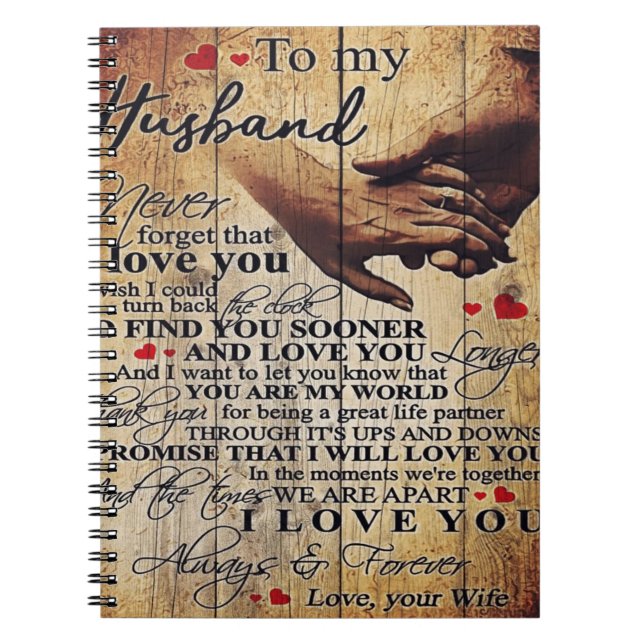 To my
Husband
Never
forget that
love you
wish I could
turn back the clock
FIND YOU SOONER
AND LOVE YOU Longer
And I want to let you know that
YOU ARE MY WORLD
Thank you for being a great life partner
THROUGH IT'S UPS AND DOWNS
PROMISE THAT I WILL LOVE YOU
In the moments we're together
And the times WE ARE APART
I LOVE YOU
Always & Forever
Love, your Wife